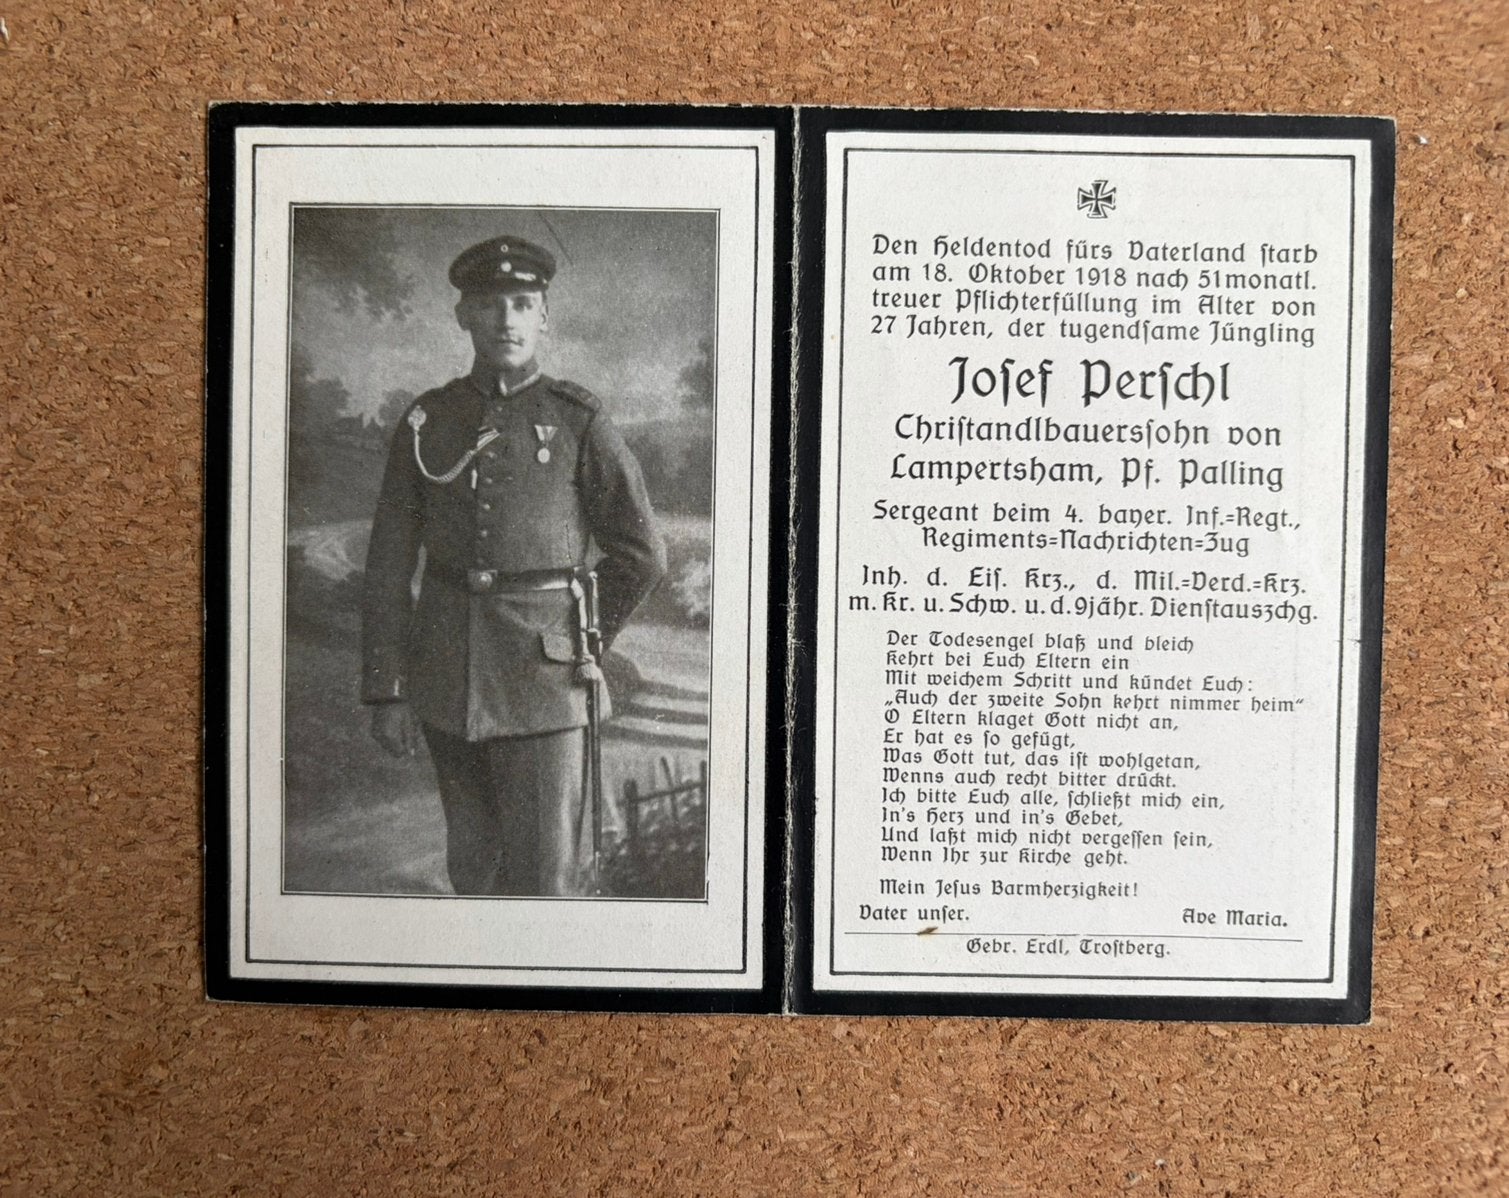 Den Heldentod fürs Vaterland ſtarb
am 18. Oktober 1918 nach 51monatl.
treuer Pflichterfüllung im Alter von
27 Jahren, der tugendſame Jüngling
Joſef Perſchl
Chriſtandlbauersſohn von
Lampertsham, Pf. Palling
Sergeant beim 4. bayer. Inf.=Regt.,
Regiments=Nachrichten=Zug
Inh. d. Eiſ. Krz., d. Mil.=Verd.=Krz.
m. Kr. u. Schw. u. d. 9jähr. Dienſtauszchg.
Der Todesengel blaß und bleich
Kehrt bei Euch Eltern ein
Mit weichem Schritt und kündet Euch:
„Auch der zweite Sohn kehrt nimmer heim“
O Eltern klaget Gott nicht an,
Er hat es ſo gefügt,
Was Gott tut, das iſt wohlgetan,
Wenns auch recht bitter drückt.
Ich bitte Euch alle, ſchließt mich ein,
In's Herz und in's Gebet,
Und laßt mich nicht vergeſſen ſein,
Wenn Ihr zur Kirche geht.
Mein Jeſus Barmherzigkeit!
Vater unſer. Ave Maria.
Gebr. Erdl, Troſtberg.